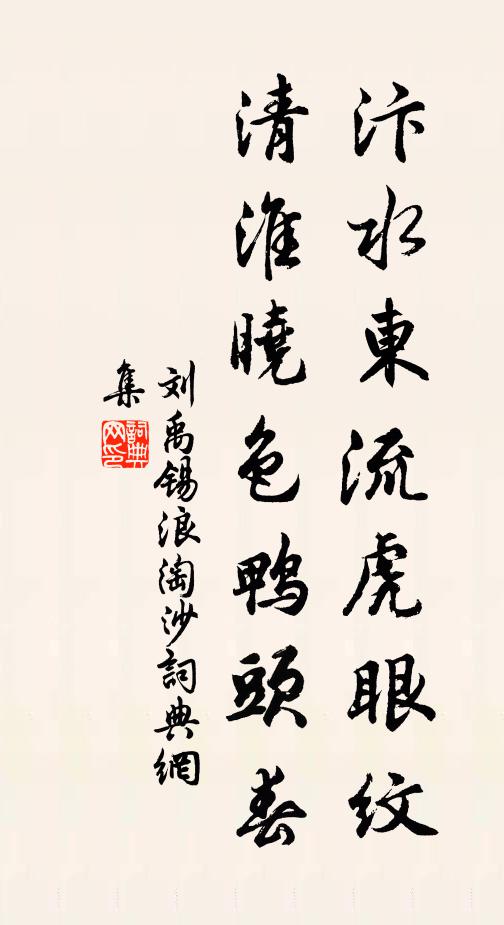 汴水東流虎眼紋
清淮曉色鴨頭春
刘禹锡浪淘沙詞典網
集
詞典網印